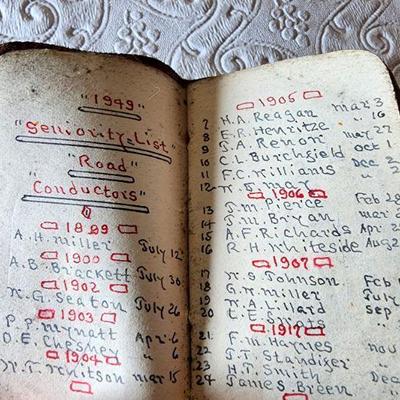 "1949"
"Seniority List"
"Road"
"Conductors"
1899
A. H. Miller July 12
1900
A. B. Brackett July 30
1902
W. G. Seaton July 26
1903
P. P. Mynatt Apr. 6
O. E. Chesney " 6
1904
W. T. Whitson Mar 15
1905
7 H. A. Reagan Mar 3
8 E. R. Henritze " 16
9 J. A. Renor May 22
10 C. L. Burchfield Oct 1
11 F. C. Williams Dec
12
1906
13 J. M. Pierce Feb
14 J. M. Bryan Mar
15 A. F. Richards Apr
16 R. H. Whiteside Aug
1907
17 W. S. Johnson Feb
18 G. W. Miller July
19 W. A. Sep
20 L. E.
1917
21 F. M. Haynes Nov
22 J. T. Standifer "
23 H. T. Smith Dec
24 James Breen "